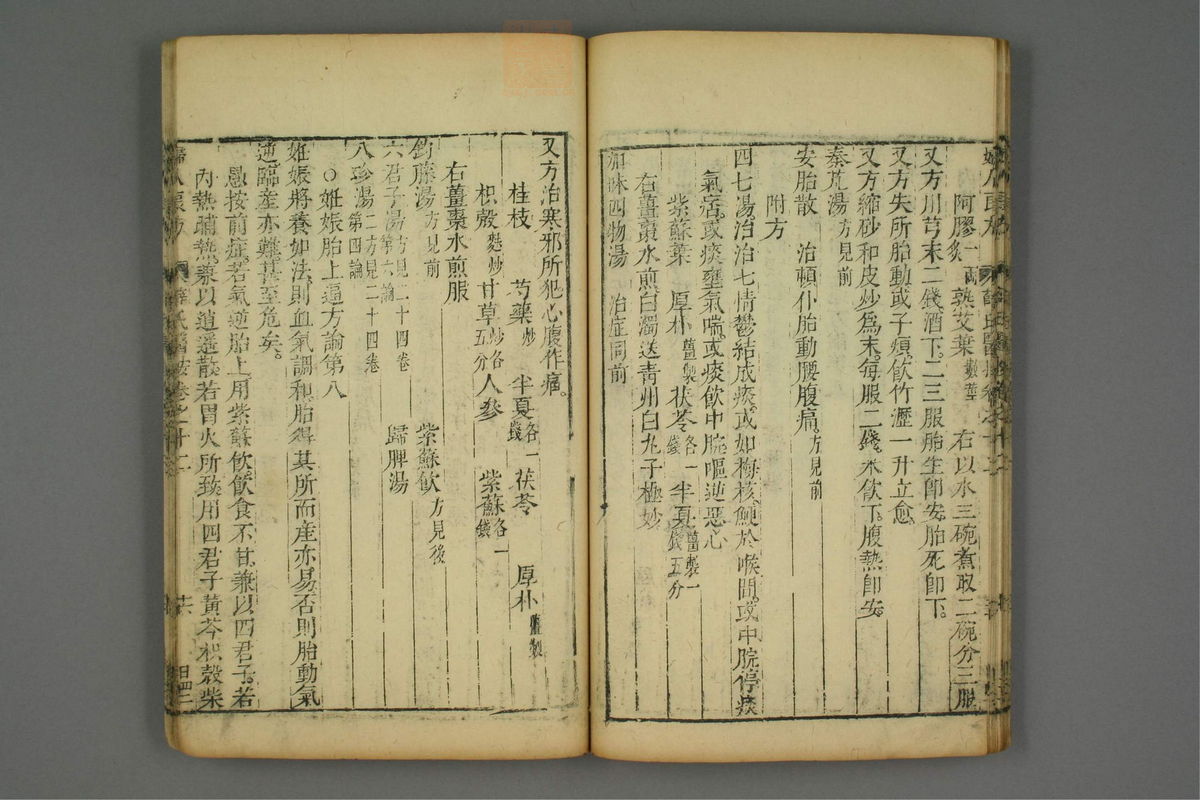 阿膠炙一兩 熟艾葉數莖 右以水三碗煮取二碗分三服
又方川芎末二錢酒下二三服胎生即安胎死即下
又方失所胎動或子煩飲竹瀝一升立愈
又方縮砂和皮炒為末每服二錢米飲下腹熱即安
秦艽湯方見前
安胎散 治頓仆胎動腰腹痛方見前
附方
四七湯治治七情鬱結成痰或如梅核鯁於喉間或中脘停痰
氣痞或痰壅氣喘或痰飲中脘嘔逆惡心
紫蘇葉 厚朴薑製 茯苓各一錢 半夏薑製一錢五分
右薑棗水煎白濁送青州白丸子極妙
加味四物湯 治症同前
又方治寒邪所犯心腹作痛
桂枝 芍藥炒 半夏各一錢 茯苓 厚朴薑製
枳殼麩炒 甘草炒各五分 人參 紫蘇各一錢
右薑棗水煎服
鉤藤湯方見前 紫蘇飲方見後
六君子湯方見二十四卷第六論 歸脾湯
八珍湯二方見二十四卷第四論
○姙娠胎上逼方論第八
姙娠將養如法則血氣調和胎得其所而產亦易否則胎動氣
逆臨產亦難甚至危矣
愚按前症若氣逆胎上用紫蘇飲飲食不甘兼以四君子若
內熱晡熱兼以逍遙散若胃火所致用四君子黃芩枳殼柴
薛氏醫按卷之十二